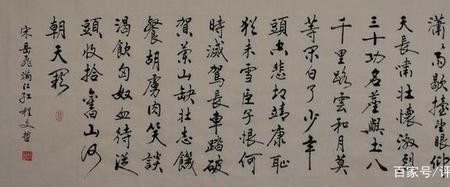 瀟雨歇擡望眼仰
天長嘯壯懷激烈
三十功名塵與土八
千里路雲和月莫
等閑白了少年
頭空悲切靖康恥
猶未雪臣子恨何
時滅駕長車踏破
賀蘭山缺壯志饑
餐胡虜肉笑談
渴飲匈奴血待從
頭收拾舊山河
朝天闕
宋岳飛滿江紅
百家号/评